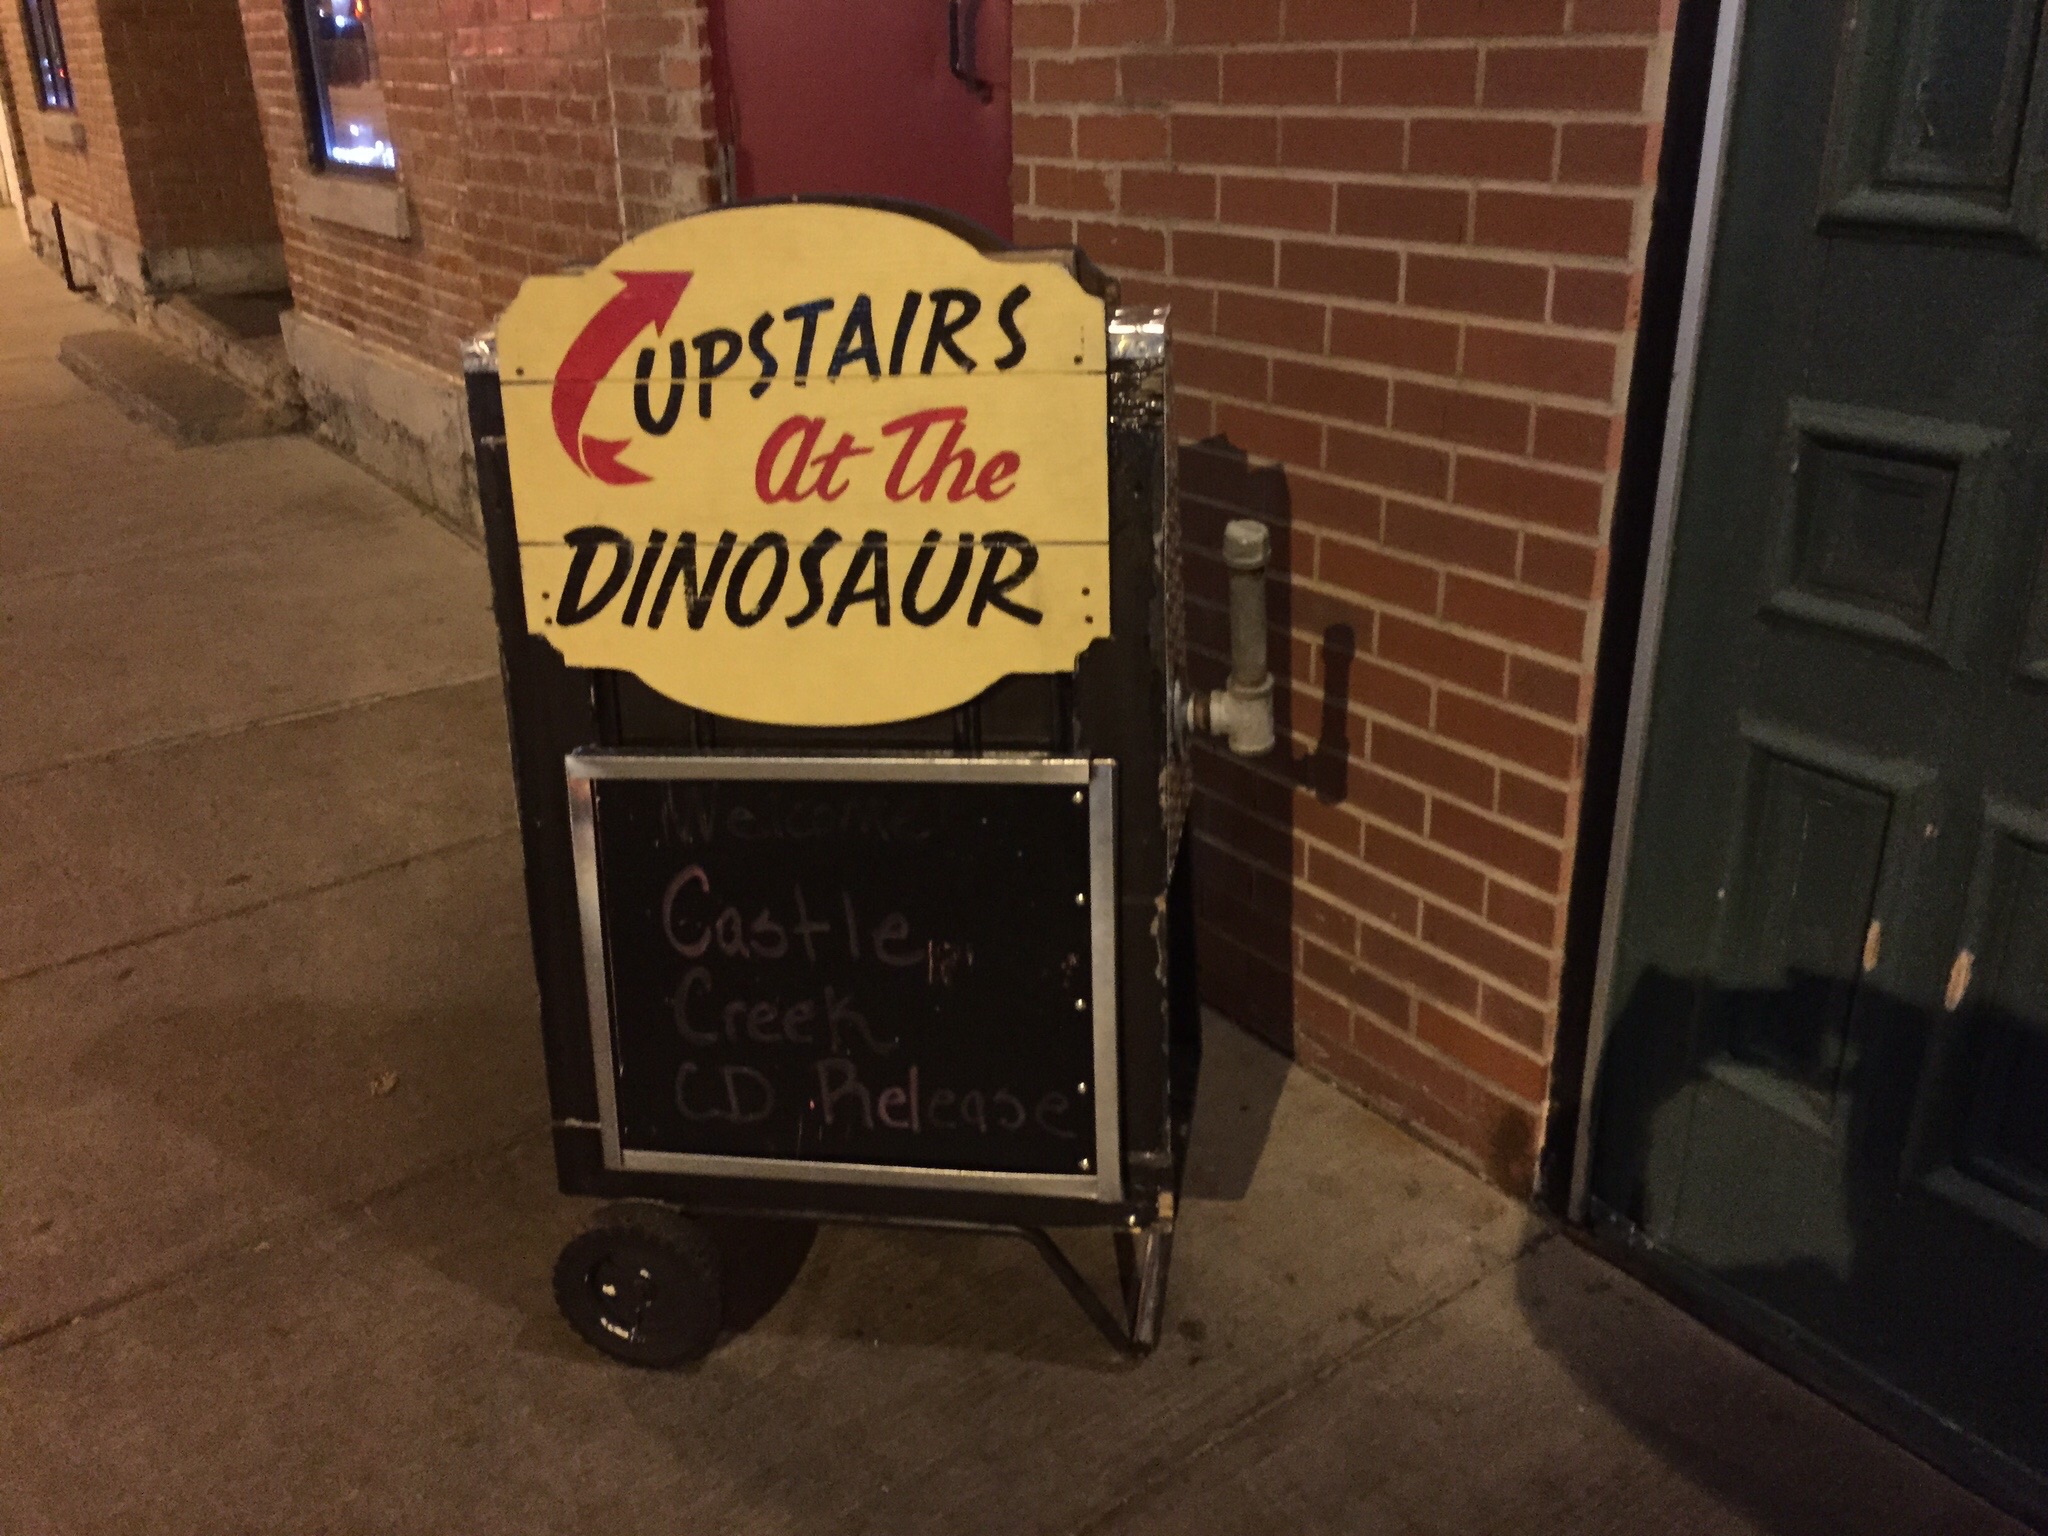 UPSTAIRS
at The
DINOSAUR
Welcome
Castle
Creek
CD Release